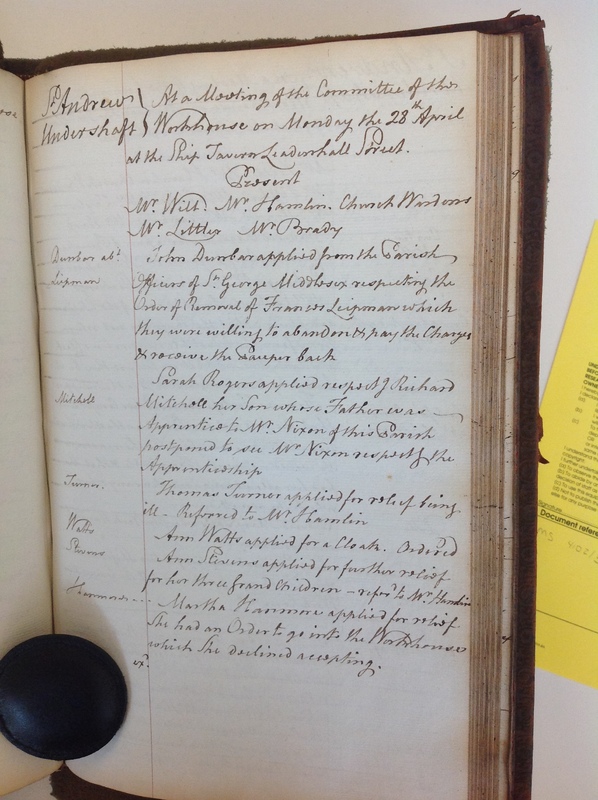 St Andrew } At a Meeting of the Committee of the
Undershaft } Workhouse on Monday the 28th April
at the Ship Tavern Leadenhall Street.
Present
Mr. Will. Mr. Hamlin. Church Wardens
Mr. Littler Mr. Brady
Dunbar abt. John Dunbar applied from the Parish
Liepman Officers of St. George Middlesex respecting the
Order of Removal of Frances Liepman which
they were willing to abandon & pay the Charges
& receive the Pauper back
Sarah Rogers applied respectg Richard
Mitchell Mitchell her Son whose Father was
Apprentice to Mr. Nixon of this Parish
postponed to see Mr. Nixon respectg the
Apprenticeship
Turner. Thomas Turner applied for relief being
ill - Referred to Mr. Hamlin
Watts Ann Watts applied for a Cloak. Ordered
Stevens Ann Stevens applied for further relief
for her three Grand Children - refer'd to Mr. Hamlin
Hanmore Martha Hanmore applied for relief
She had an Order to go into the Workhouse
which She declined accepting.
exd.
Signature
Document refere
MS 402